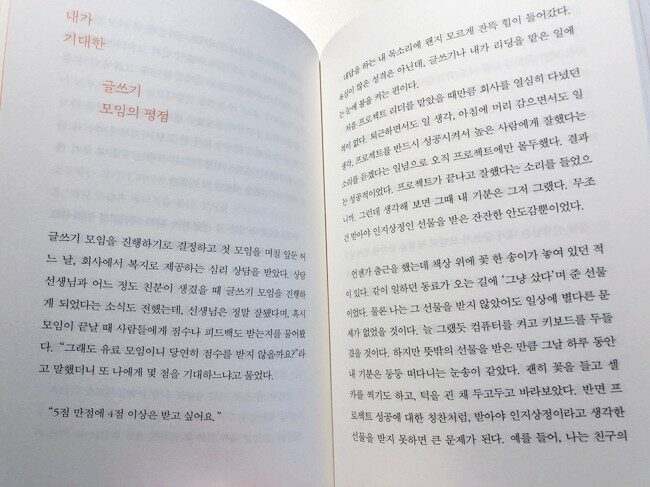 내가
기대한
글쓰기
모임의 평점
글쓰기 모임을 진행하기로 결정하고 첫 모임을 며칠 앞둔 어
느 날, 회사에서 복지로 제공하는 심리 상담을 받았다. 상담
선생님과 어느 정도 친분이 생겼을 때 글쓰기 모임을 진행하
게 되었다는 소식도 전했는데, 선생님은 정말 잘됐다며, 혹시
모임이 끝날 때 사람들에게 점수나 피드백도 받는지를 물어봤
다. “그래도 유료 모임이니 당연히 점수를 받지 않을까요?”라
고 말했더니 또 나에게 몇 점을 기대하느냐고 물었다.
“5점 만점에 4점 이상은 받고 싶어요.”
대답을 하는 내 목소리에 왠지 모르게 잔뜩 힘이 들어갔다.
욕심이 많은 성격은 아닌데, 글쓰기나 내가 리딩을 맡은 일에
는 눈에 불을 켜는 편이다.
처음 프로젝트 리더를 맡았을 때만큼 회사를 열심히 다녔던
적이 없다. 퇴근하면서도 일 생각, 아침에 머리 감으면서도 일
생각, 프로젝트를 반드시 성공시켜서 높은 사람에게 잘했다는
소리를 듣겠다는 일념으로 오직 프로젝트에만 몰두했다. 결과
는 성공적이었다. 프로젝트가 끝나고 잘했다는 소리를 들었으
니까. 그런데 생각해 보면 그때 내 기분은 그저 그랬다. 무조
건 받아야 인지상정인 선물을 받은 잔잔한 안도감뿐이었다.
언젠가 출근을 했는데 책상 위에 꽃 한 송이가 놓여 있던 적
이 있다. 같이 일하던 동료가 오는 길에 ‘그냥 샀다’며 준 선물
이었다. 물론 나는 그 선물을 받지 않았어도 일상에 별다른 문
제가 없었을 것이다. 늘 그랬듯 컴퓨터를 켜고 키보드를 두들
겼을 것이다. 하지만 뜻밖의 선물을 받은 만큼 그날 하루 동안
내 기분은 둥둥 떠다니는 눈송이 같았다. 괜히 꽃을 들고 셀
카를 찍기도 하고, 턱을 괸 채 두고두고 바라보았다. 반면 프
로젝트 성공에 대한 칭찬처럼, 받아야 인지상정이라고 생각한
선물을 받지 못하면 큰 문제가 된다. 예를 들어, 나는 친구의